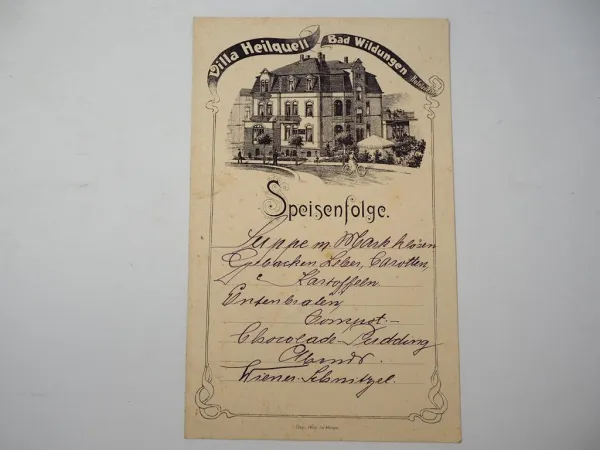 Villa Heilquell Bad Wildungen
Speisenfolge.
Suppe m. Markklösen
Gebacken Leber, Carotten,
Kartoffeln
Entenbraten,
Compot.-
Chocolade-Pudding
Abends.
Wiener-Schnitzel.